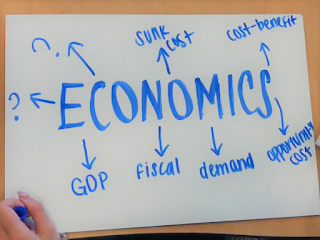 ?
sunk
cost
cost-benefit
?
ECONOMICS
GDP
fiscal
demand
opportunity
cost